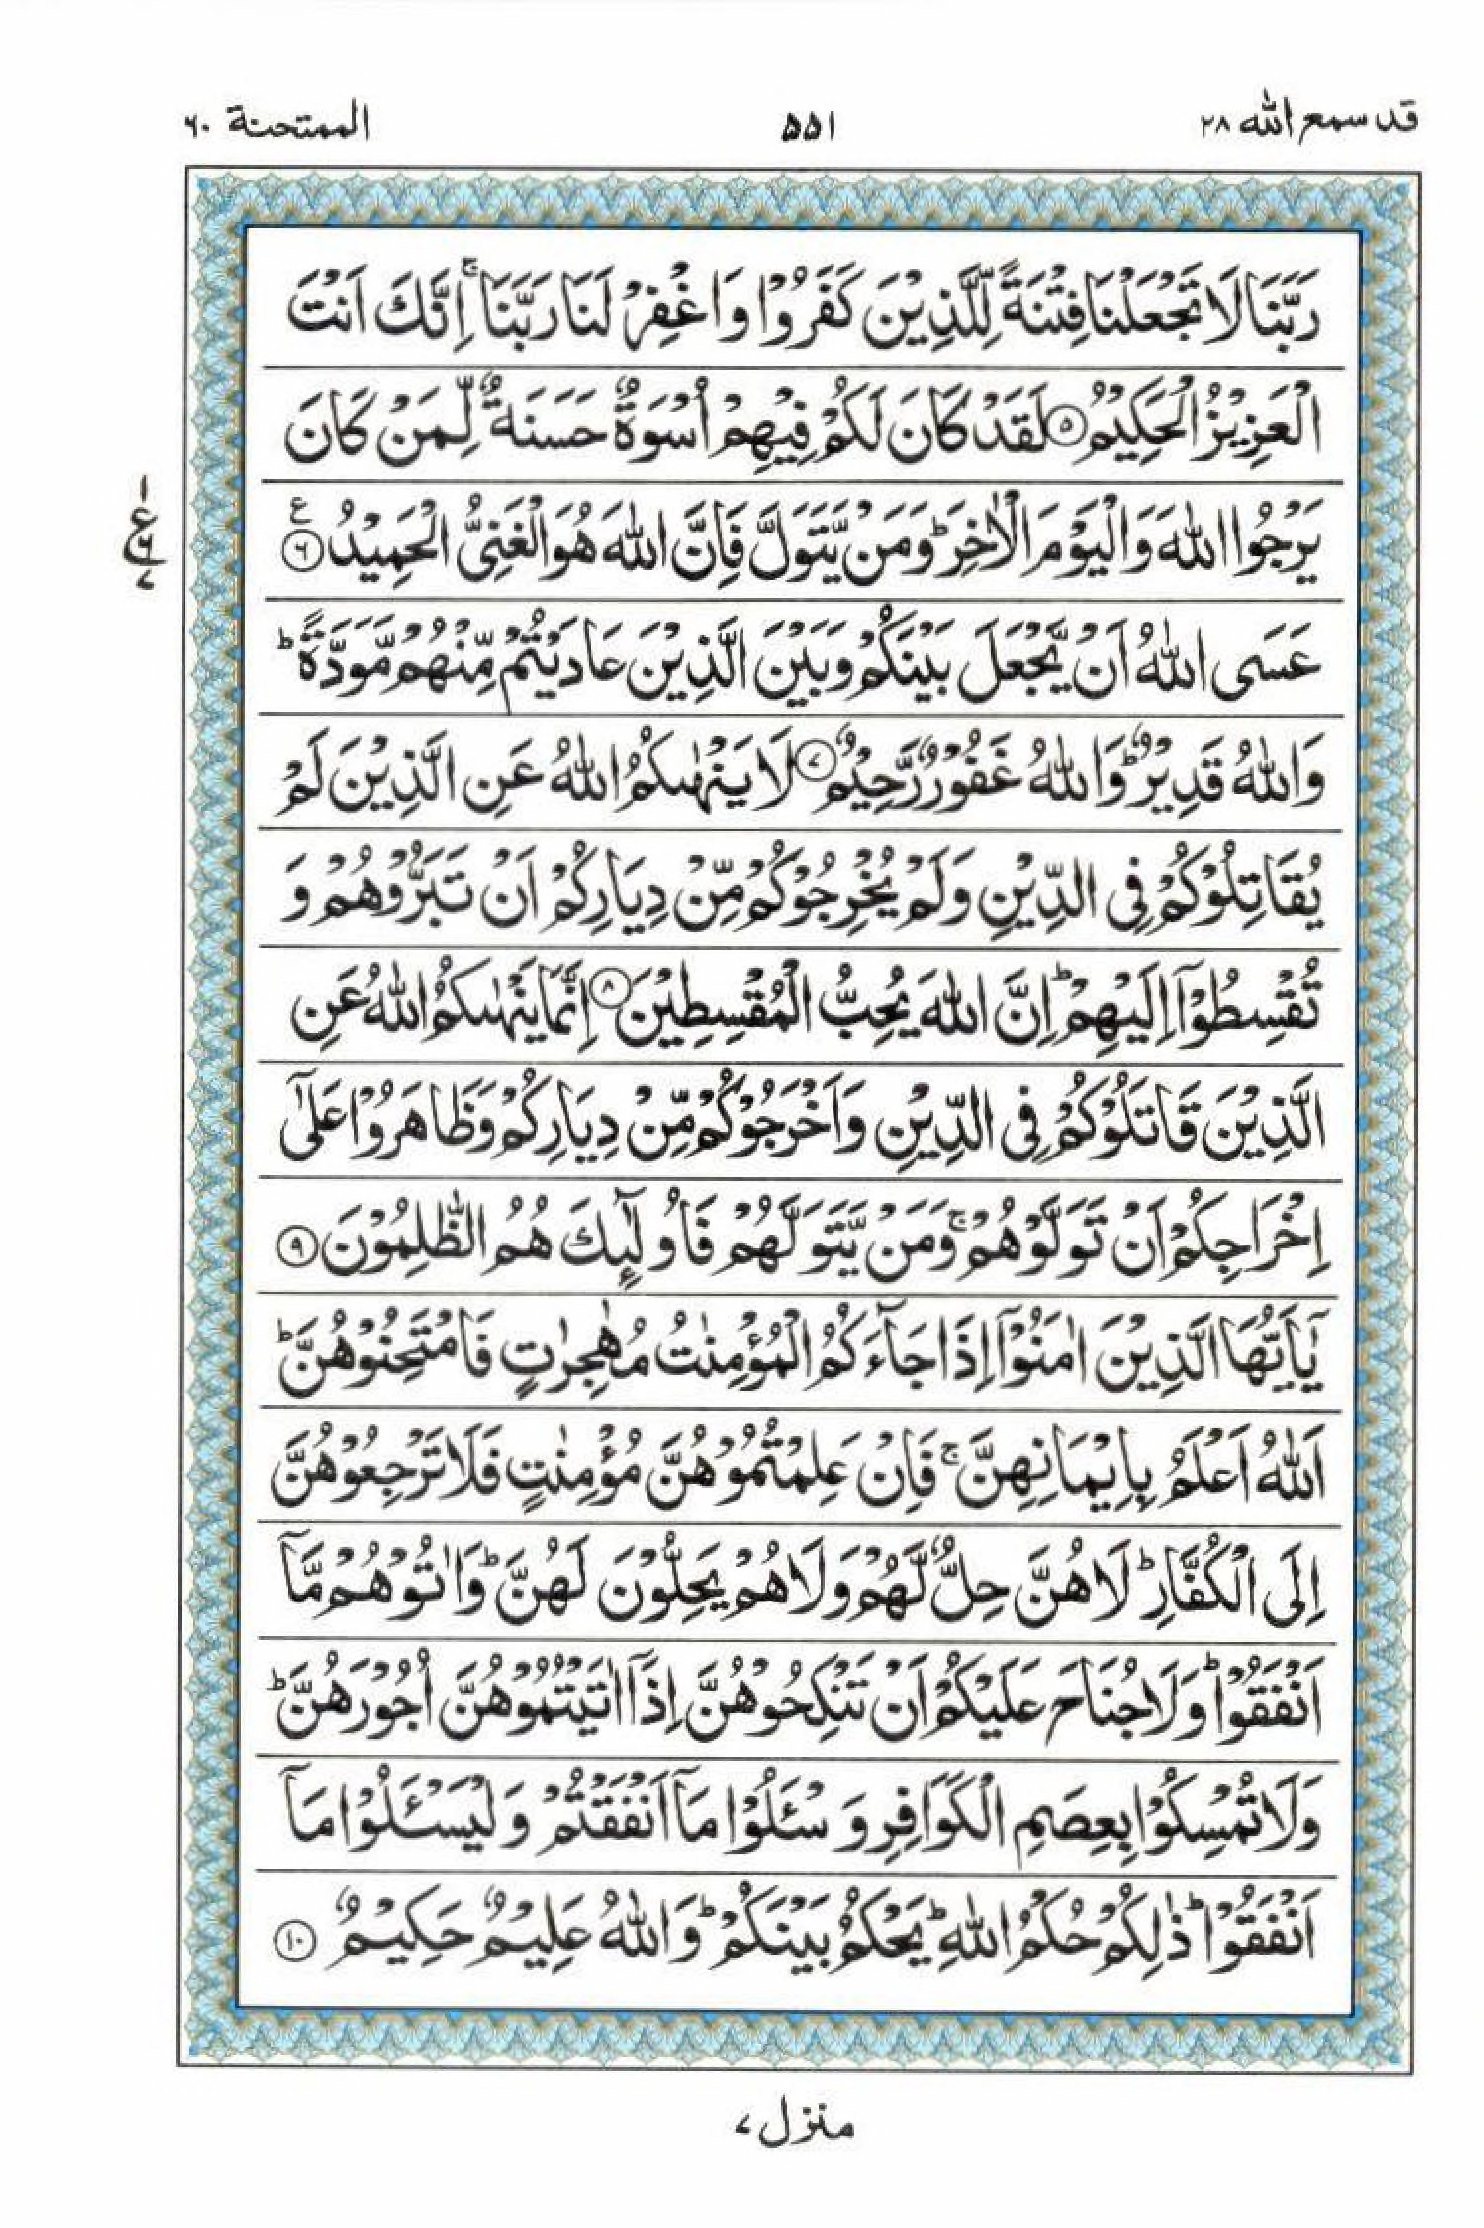 قد سمع الله ٢٨
۵۵۱
الممتحنة ٦٠
رَبَّنَا لَا تَجْعَلْنَا فِتْنَةً لِّلَّذِيْنَ كَفَرُوْا وَاغْفِرْ لَنَا رَبَّنَا ۚ اِنَّكَ اَنْتَ
الْعَزِيْزُ الْحَكِيْمُ ۝٥ لَقَدْ كَانَ لَكُمْ فِيْهِمْ اُسْوَةٌ حَسَنَةٌ لِّمَنْ كَانَ
يَرْجُوا اللّٰهَ وَالْيَوْمَ الْاٰخِرَ ؕ وَمَنْ يَّتَوَلَّ فَاِنَّ اللّٰهَ هُوَ الْغَنِىُّ الْحَمِيْدُ ۝٦ ع
١
ع
٦
٧
عَسَى اللّٰهُ اَنْ يَّجْعَلَ بَيْنَكُمْ وَبَيْنَ الَّذِيْنَ عَادَيْتُمْ مِّنْهُمْ مَّوَدَّةً ؕ
وَاللّٰهُ قَدِيْرٌ ؕ وَاللّٰهُ غَفُوْرٌ رَّحِيْمٌ ۝٧ لَا يَنْهٰىكُمُ اللّٰهُ عَنِ الَّذِيْنَ لَمْ
يُقَاتِلُوْكُمْ فِى الدِّيْنِ وَلَمْ يُخْرِجُوْكُمْ مِّنْ دِيَارِكُمْ اَنْ تَبَرُّوْهُمْ وَ
تُقْسِطُوْٓا اِلَيْهِمْ ؕ اِنَّ اللّٰهَ يُحِبُّ الْمُقْسِطِيْنَ ۝٨ اِنَّمَا يَنْهٰىكُمُ اللّٰهُ عَنِ
الَّذِيْنَ قَاتَلُوْكُمْ فِى الدِّيْنِ وَاَخْرَجُوْكُمْ مِّنْ دِيَارِكُمْ وَظَاهَرُوْا عَلٰٓى
اِخْرَاجِكُمْ اَنْ تَوَلَّوْهُمْ ۚ وَمَنْ يَّتَوَلَّهُمْ فَاُولٰٓئِكَ هُمُ الظّٰلِمُوْنَ ۝٩
يٰٓاَيُّهَا الَّذِيْنَ اٰمَنُوْٓا اِذَا جَآءَكُمُ الْمُؤْمِنٰتُ مُهٰجِرٰتٍ فَامْتَحِنُوْهُنَّ ؕ
اَللّٰهُ اَعْلَمُ بِاِيْمَانِهِنَّ ۚ فَاِنْ عَلِمْتُمُوْهُنَّ مُؤْمِنٰتٍ فَلَا تَرْجِعُوْهُنَّ
اِلَى الْكُفَّارِ ؕ لَا هُنَّ حِلٌّ لَّهُمْ وَلَا هُمْ يَحِلُّوْنَ لَهُنَّ ؕ وَاٰتُوْهُمْ مَّآ
اَنْفَقُوْا ؕ وَلَا جُنَاحَ عَلَيْكُمْ اَنْ تَنْكِحُوْهُنَّ اِذَآ اٰتَيْتُمُوْهُنَّ اُجُوْرَهُنَّ ؕ
وَلَا تُمْسِكُوْا بِعِصَمِ الْكَوَافِرِ وَ سْئَلُوْا مَآ اَنْفَقْتُمْ وَلْيَسْئَلُوْا مَآ
اَنْفَقُوْا ؕ ذٰلِكُمْ حُكْمُ اللّٰهِ ؕ يَحْكُمُ بَيْنَكُمْ ؕ وَاللّٰهُ عَلِيْمٌ حَكِيْمٌ ۝١٠
منزل ٧